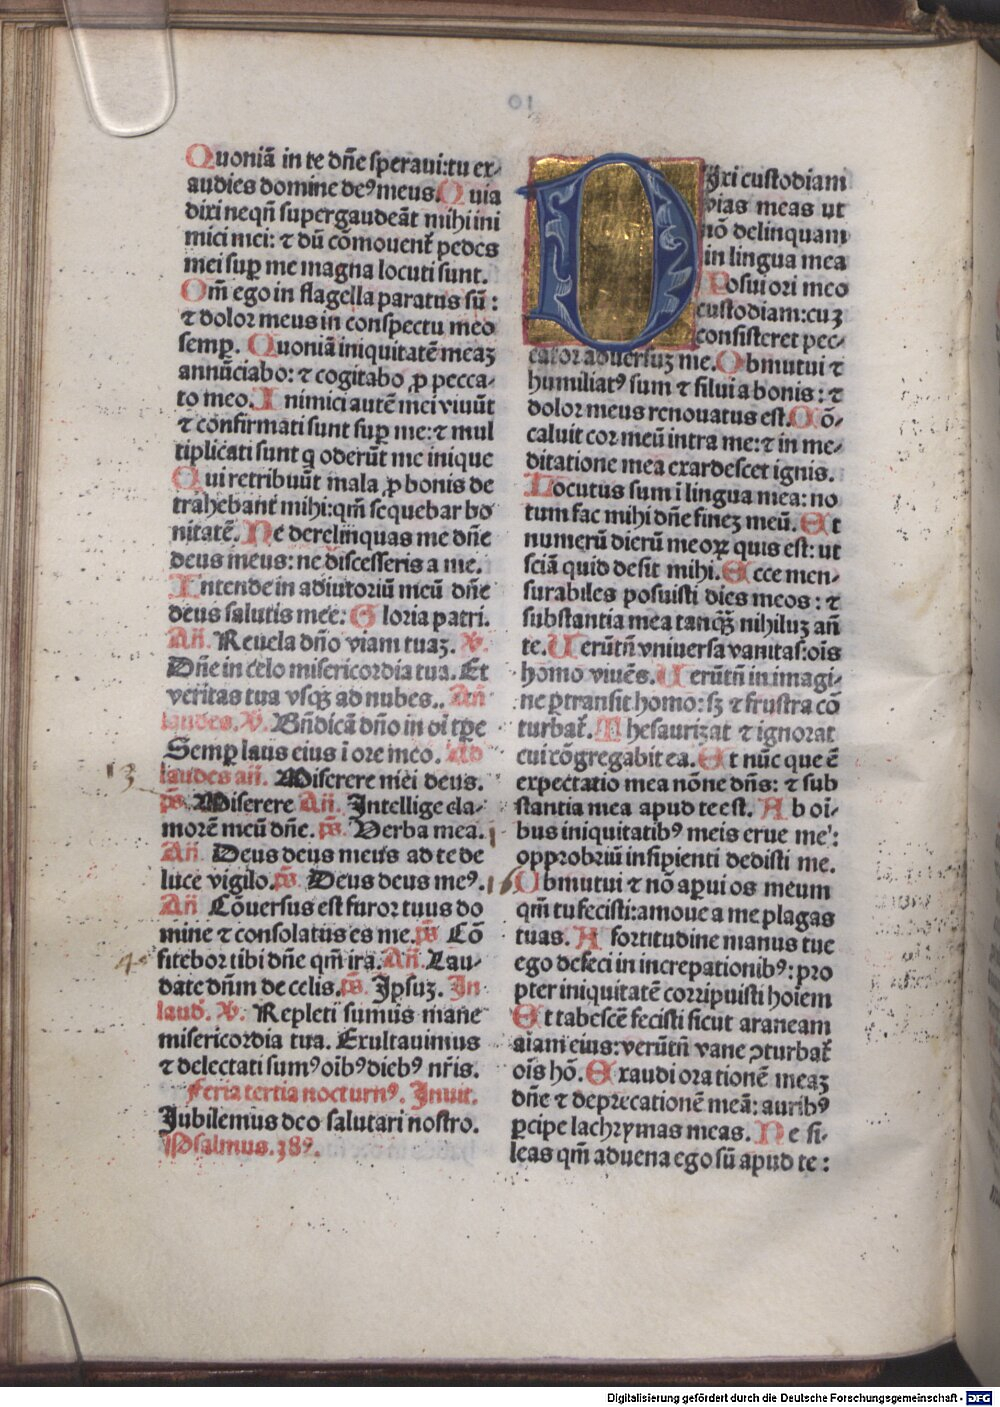 01
Quoniā in te dn̄e speraui:tu ex-
audies domine deꝰ meus. Quia
dixi neqn̄ supergaudeāt mihi ini
mici mei: ⁊ dū cōmouent᷑ pedes
mei suꝑ me magna locuti sunt.
Qm̄ ego in flagella paratus sū:
⁊ dolor meus in conspectu meo
semꝑ. Quoniā iniquitatē meaꝫ
annūciabo: ⁊ cogitabo ꝓ pecca-
to meo. Inimici autē mei viuūt
⁊ confirmati sunt suꝑ me: ⁊ mul
tiplicati sunt q oderūt me inique
Qui retribuūt mala ꝓ bonis de
trahebant mihi:qm̄ sequebar bo
nitatē. Ne derelinquas me dn̄e
deus meus: ne discesseris a me.
Intende in adiutoriū meū dn̄e
deus salutis mee: Gloria patri.
Añ. Reuela dn̄o viam tuaꝫ. V.
Dn̄e in celo misericordia tua. Et
veritas tua vsqꝫ ad nubes.. Añ
laudes. V. Bn̄dicā dn̄o in oī tꝑe
Semꝑ laus eius ī ore meo. Ad
laudes añ. Miserere mei deus.
13
ps̄. Miserere Añ. Intellige cla-
morē meū dn̄e. ps̄. Verba mea.
Añ Deus deus meus ad te de
luce vigilo. ps̄. Deus deus meꝰ.
Añ Cōuersus est furor tuus do
mine ⁊ consolatus es me. ps̄ Cō
fitebor tibi dn̄e qm̄ ira. Añ. Lau-
date dn̄m de celis. ps̄. Ipsuꝫ. In
laud. V. Repleti sumus mane
misericordia tua. Exultauimus
⁊ delectati sumꝰ oībꝰ diebꝰ nr̄is.
Feria tertia nocturnꝰ. Inuit.
Jubilemus deo salutari nostro.
Psalmus.38ꝰ.
Dixi custodiam
vias meas ut
nō delinquam
in lingua mea
Posui ori meo
custodiam:cuꝫ
consisteret pec-
cator aduersuꝫ me. Obmutui ⁊
humiliatꝰ sum ⁊ silui a bonis: ⁊
dolor meus renouatus est. Cō-
caluit cor meū intra me: ⁊ in me-
ditatione mea exardescet ignis.
Locutus sum ī lingua mea: no
tum fac mihi dn̄e fineꝫ meū. Et
numerū dierū meoꝝ quis est: ut
sciā quid desit mihi. Ecce men-
surabiles posuisti dies meos: ⁊
substantia mea tanqꝫ nihiluꝫ añ
te. Uerūtn̄ vniuersa vanitas:oīs
homo viuēs. Uerūtn̄ in imagi-
ne ꝑtransit homo: sꝫ ⁊ frustra cō
turbat᷑. Thesaurizat ⁊ ignorat
cui cōgregabit ea. Et nūc que ē
expectatio mea nōne dn̄s: ⁊ sub
stantia mea apud te est. Ab oī-
bus iniquitatibꝰ meis erue me:
opprobriū insipienti dedisti me.
16
Obmutui ⁊ nō aꝑui os meum
qm̄ tu fecisti:amoue a me plagas
tuas. A fortitudine manus tue
ego defeci in increpationibꝰ: pro
pter iniquitatē corripuisti hoīem
Et tabescē fecisti sicut araneam
aīam eius: verūtn̄ vane ꝯturbat᷑
oīs hō. Exaudi orationē meaꝫ
dn̄e ⁊ deprecationē meā: auribꝰ
ꝑcipe lachrymas meas. Ne si-
leas qm̄ aduena ego sū apud te:
Digitalisierung gefördert durch die Deutsche Forschungsgemeinschaft - DFG